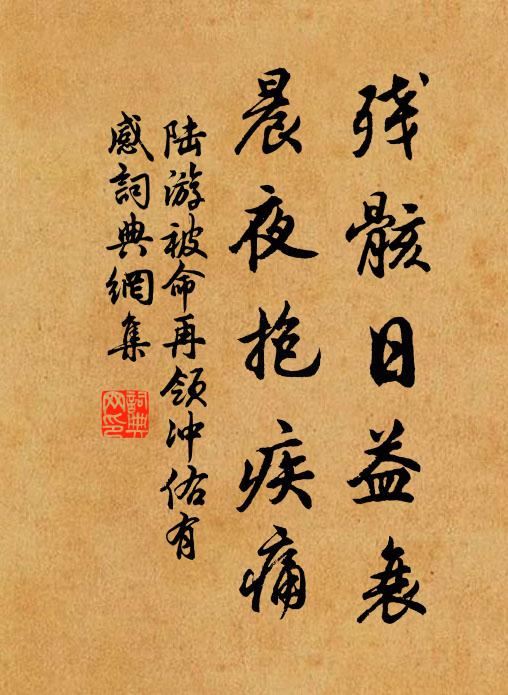 残骸日益衰
晨夜抱疾痛
陆游被命再领冲佑有
感詞典網集
詞典
网印